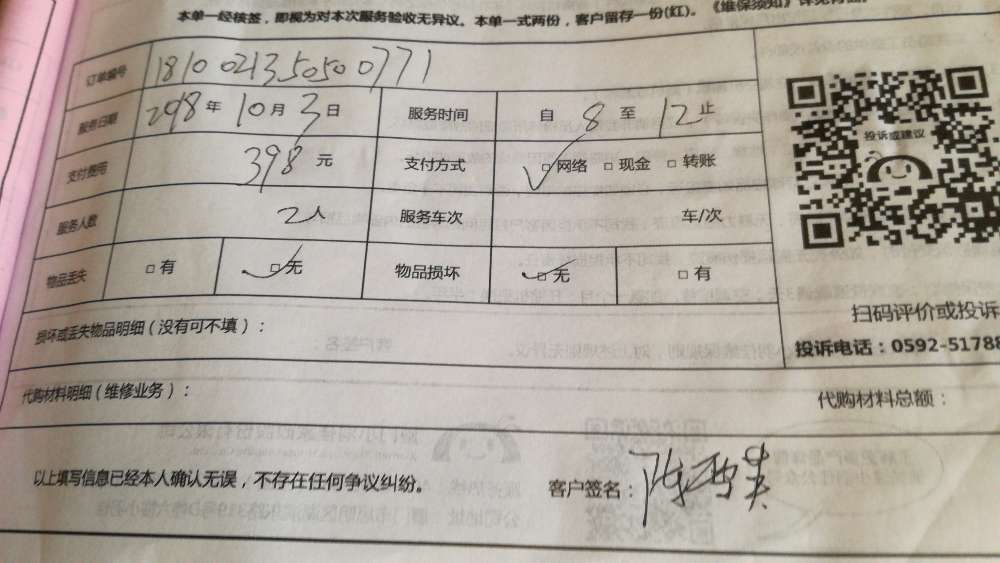 本单一经核签，即视为对本次服务验收无异议。本单一式两份，客户留存一份(红)。《维保须知》详见背面。
订单编号 1810021350500771
服务日期 2018年10月3日 服务时间 自8至12止
支付费用 398元 支付方式 □网络 □现金 □转账
服务人数 2人 服务车次 车/次
物品丢失 □有 □无 物品损坏 □无 □有
损坏或丢失物品明细（没有可不填）：
代购材料明细（维修业务）：
代购材料总额：
以上填写信息已经本人确认无误，不存在任何争议纠纷。
客户签名：
投诉或建议
扫码评价或投诉
投诉电话：0592-51788